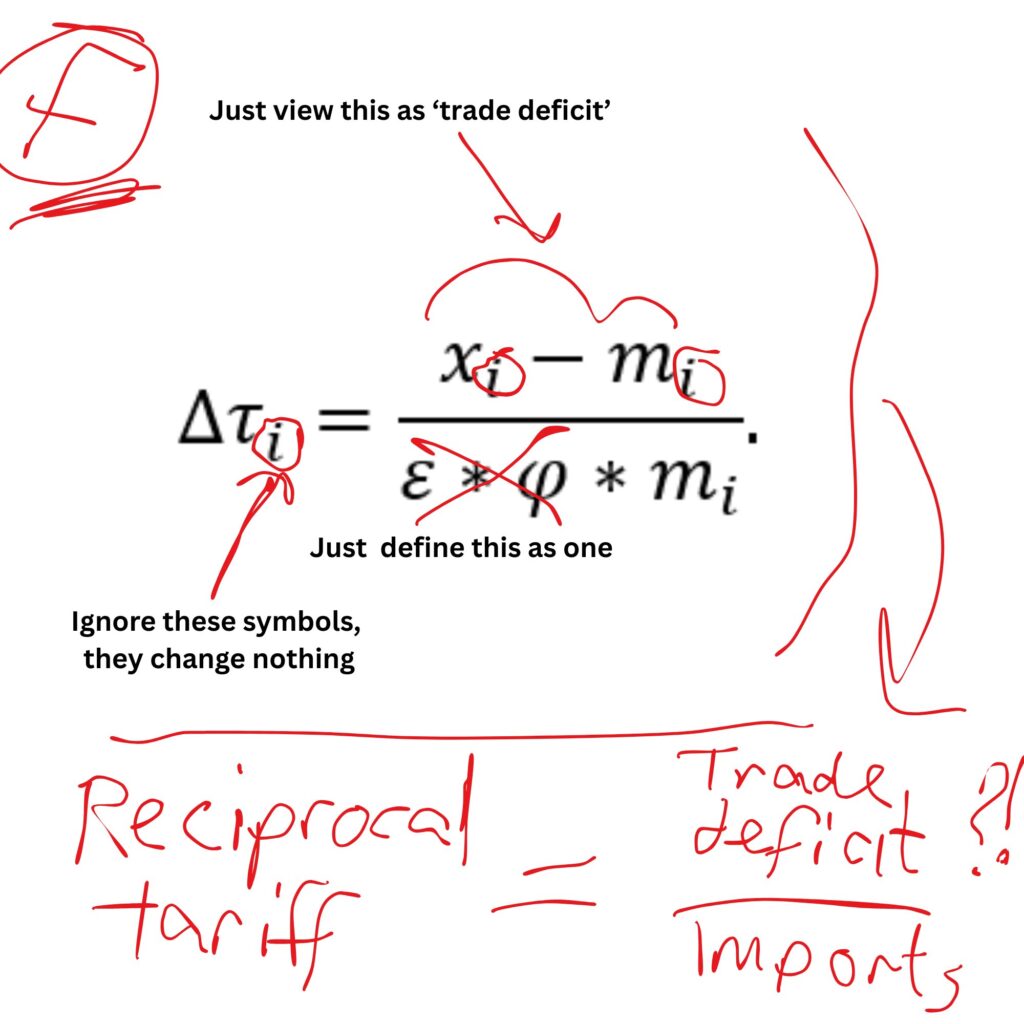 F
Just view this as ‘trade deficit’
Δτᵢ = (xᵢ − mᵢ) / (ε * φ * mᵢ).
Just define this as one
Ignore these symbols,
they change nothing
Reciprocal tariff = Trade deficit / Imports ?!